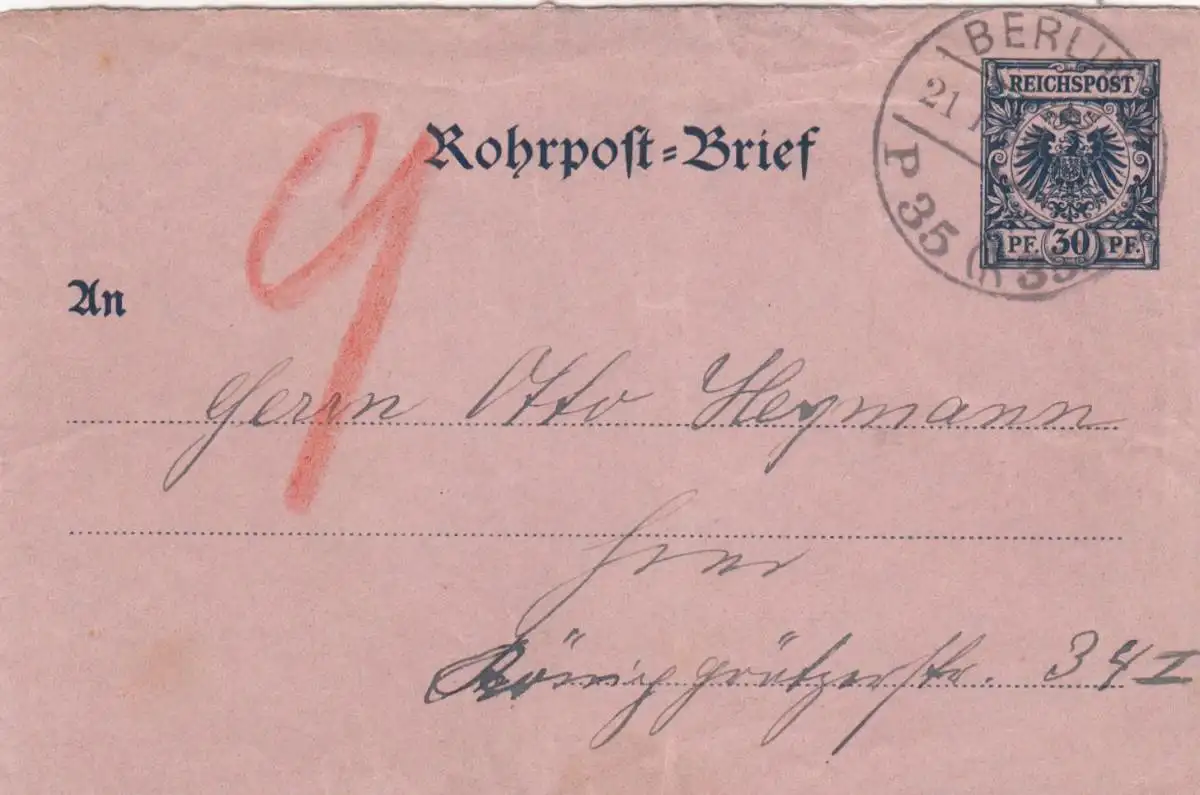 BERLIN
21
P 35 (R 35
REICHSPOST
PF. 30 PF.
9
Rohrpost-Brief
An
Herrn Otto Heymann
hier
Königgrätzerstr. 34 I